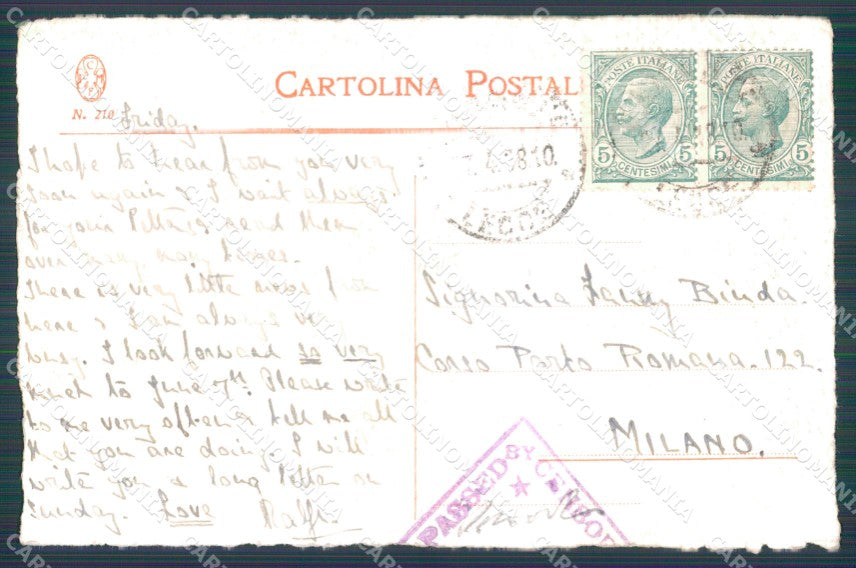 CARTOLINA POSTAL
N. 210
Friday.
I hope to hear from you very
soon again & I wait always
for your letters & read them
over many, many times.
There is very little news from
here & I am always
busy. I look forward so very
much to June 7th. Please write
to me very often & tell me all
that you are doing. I will
write you a long letter on
Sunday. Love Ralf.
POSTE ITALIANE
5 CENTESIMI 5
POSTE ITALIANE
5 CENTESIMI 5
Signorina Fanny Binda.
Corso Porto Romana. 122.
MILANO.
PASSED BY CENSOR
CARTOLINOMANIA